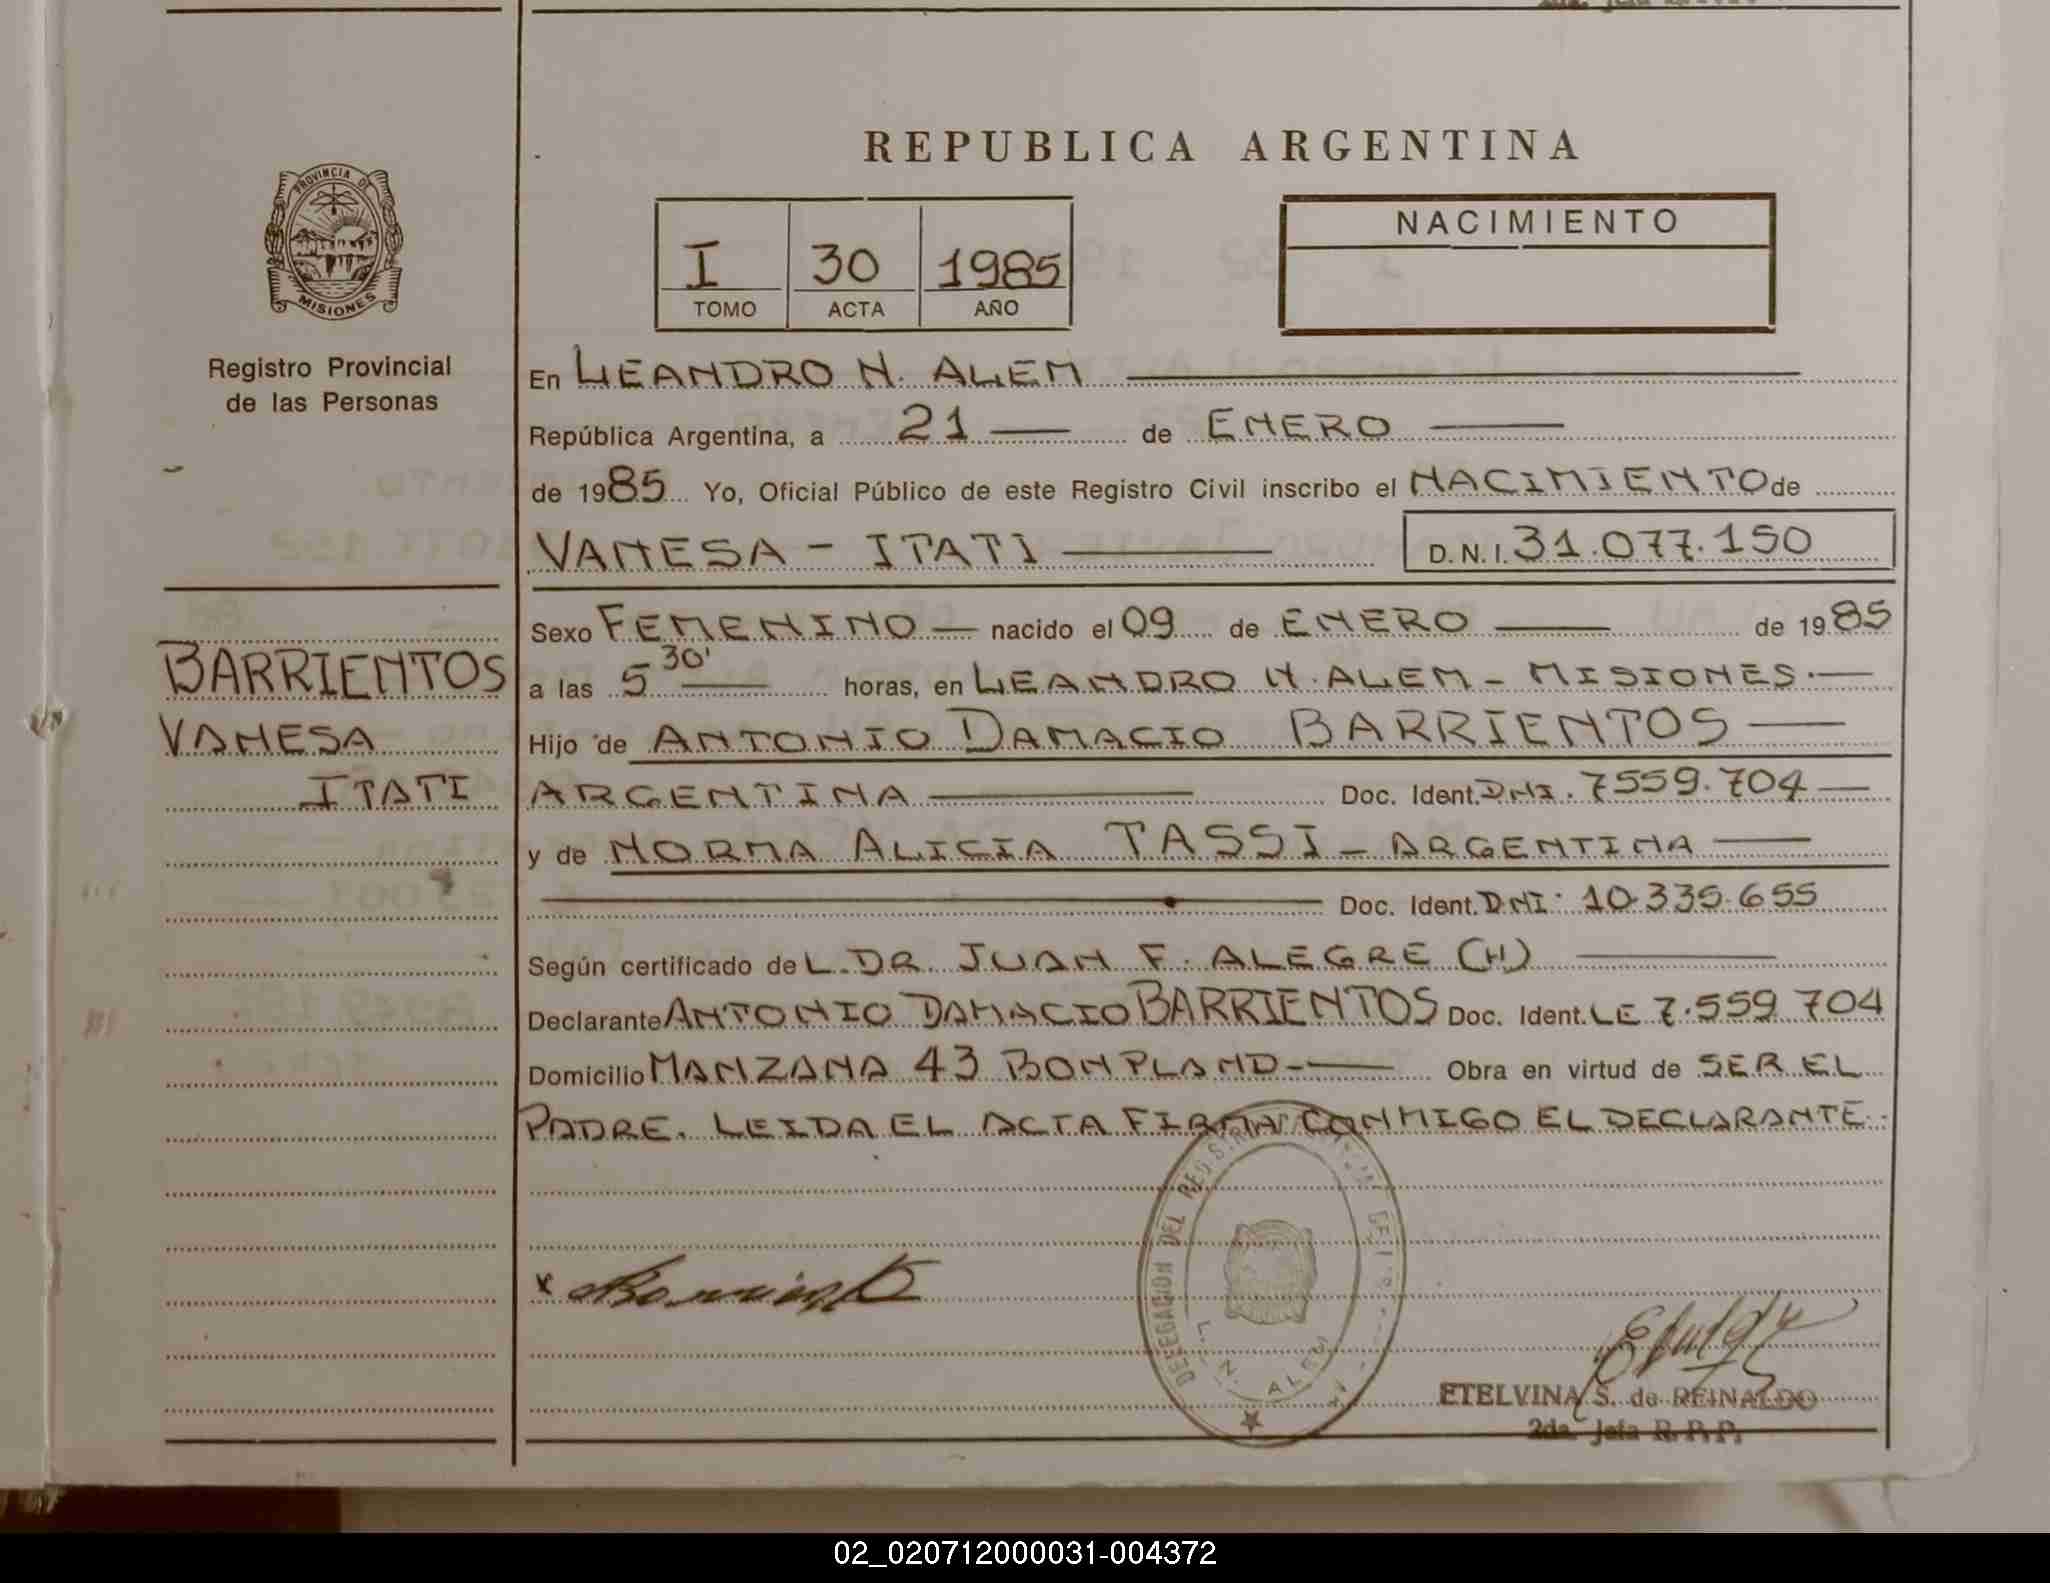 REPUBLICA ARGENTINA
PROVINCIA DE
MISIONES
Registro Provincial
de las Personas
I 30 1985
TOMO ACTA AÑO
NACIMIENTO
En LEANDRO N. ALEM
República Argentina, a 21 de ENERO
de 1985 Yo, Oficial Público de este Registro Civil inscribo el NACIMIENTO de
VANESA - ITATI D.N.I. 31.077.150
Sexo FEMENINO nacido el 09 de ENERO de 1985
a las 5 30' horas, en LEANDRO N. ALEM - MISIONES.
Hijo de ANTONIO DAMACIO BARRIENTOS
ARGENTINA Doc. Ident. DNI. 7559.704
y de NORMA ALICIA TASSI - ARGENTINA
Doc. Ident. DNI: 10.335.655
Según certificado de L. DR. JUAN F. ALEGRE (H)
Declarante ANTONIO DAMACIO BARRIENTOS Doc. Ident. LE 7.559 704
Domicilio MANZANA 43 BONPLAND- Obra en virtud de SER EL
PADRE. LEIDA EL ACTA FIRMA CONMIGO EL DECLARANTE.
BARRIENTOS
VANESA
ITATI
x
DELEGACION DEL REGISTRO
L. N. ALEM
ETELVINA S. de REINALDO
2da. Jefa R. P. P.
02_020712000031-004372